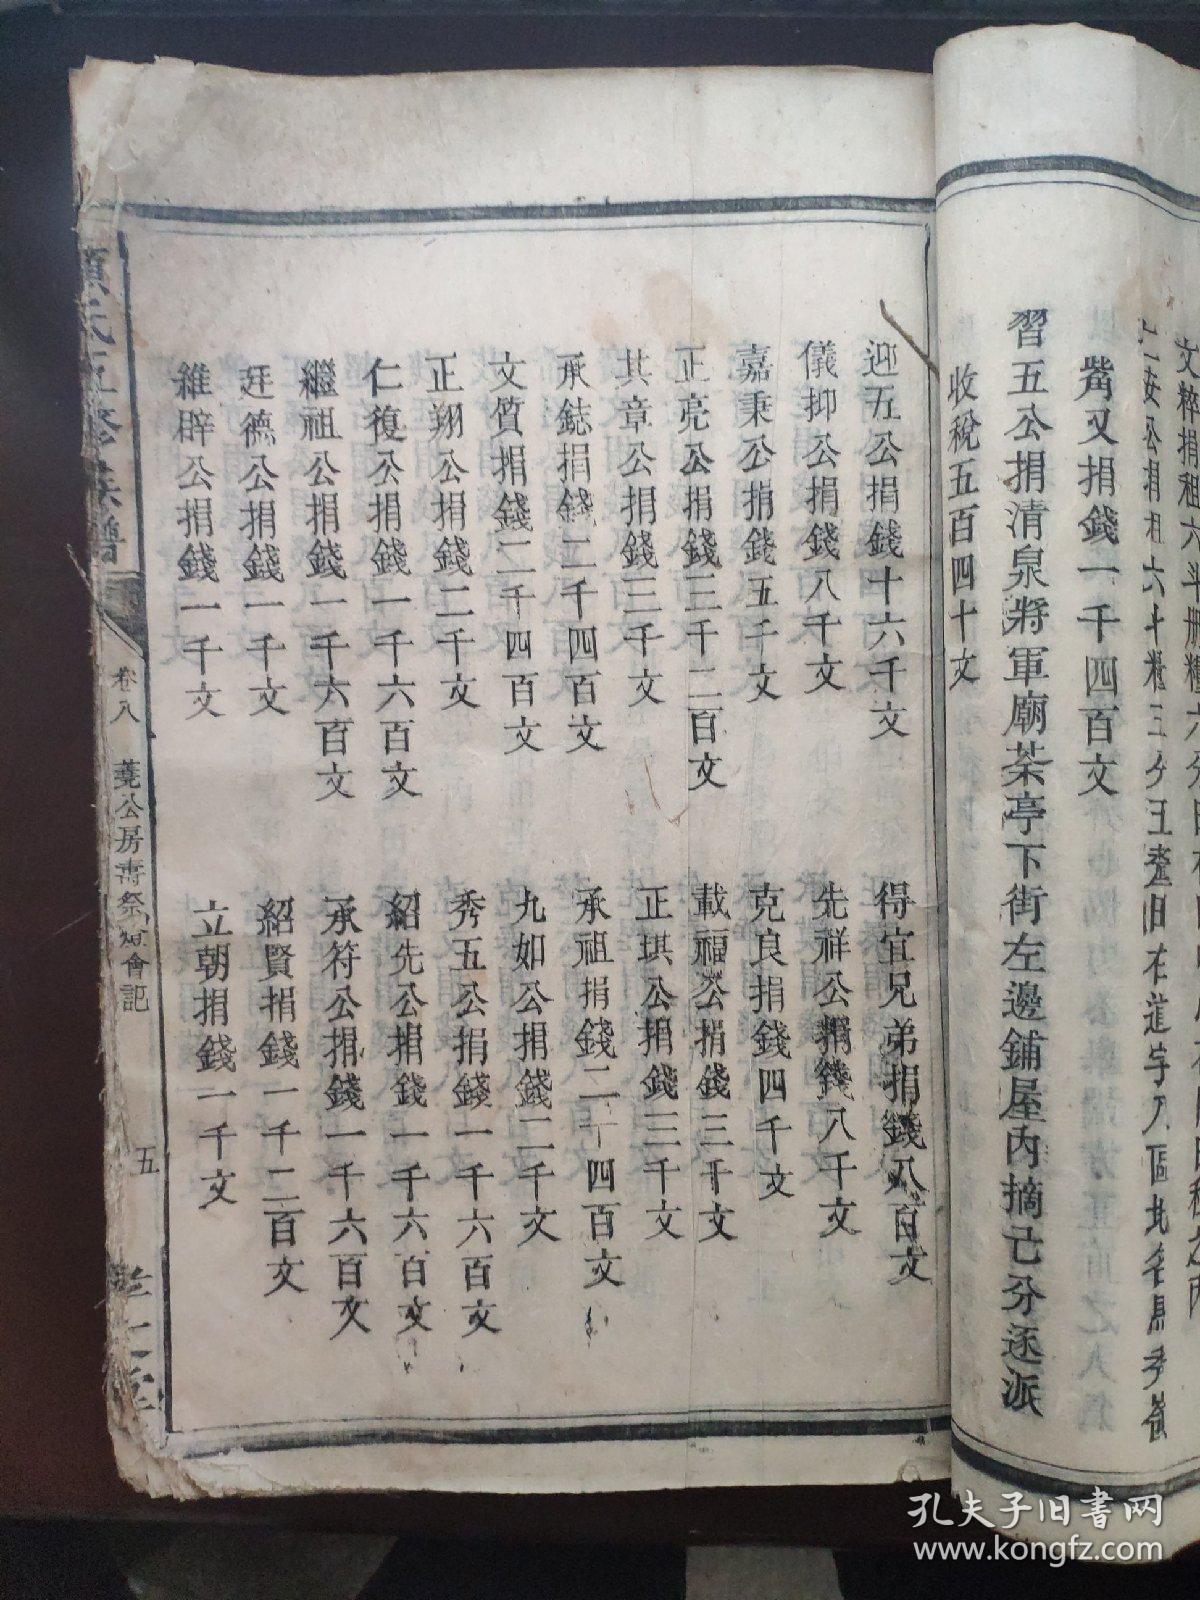 文粹捐租六斗冊糧六分
公捐租六十糧三分
觜又捐錢一千四百文
習五公捐清泉將軍廟茶亭下街左邊鋪屋內摘己分逐派
收稅五百四十文
迎五公捐錢十六千文 得宜兄弟捐錢八百文
儀抑公捐錢八千文 先祥公捐錢八千文
嘉秉公捐錢五千文 克良捐錢四千文
正亮公捐錢三千二百文 載福公捐錢三千文
其章公捐錢三千文 正琪公捐錢三千文
承鋕捐錢二千四百文 承祖捐錢二千四百文
文質捐錢二千四百文 九如公捐錢二千文
正翔公捐錢二千文 秀五公捐錢一千六百文
仁復公捐錢一千六百文 紹先公捐錢一千六百文
繼祖公捐錢一千六百文 承符公捐錢一千六百文
廷德公捐錢一千文 紹賢捐錢一千二百文
維辟公捐錢一千文 立朝捐錢一千文
氏五修族譜 卷八 公房壽祭會記 五 堂
孔夫子旧书网
www.kongfz.com